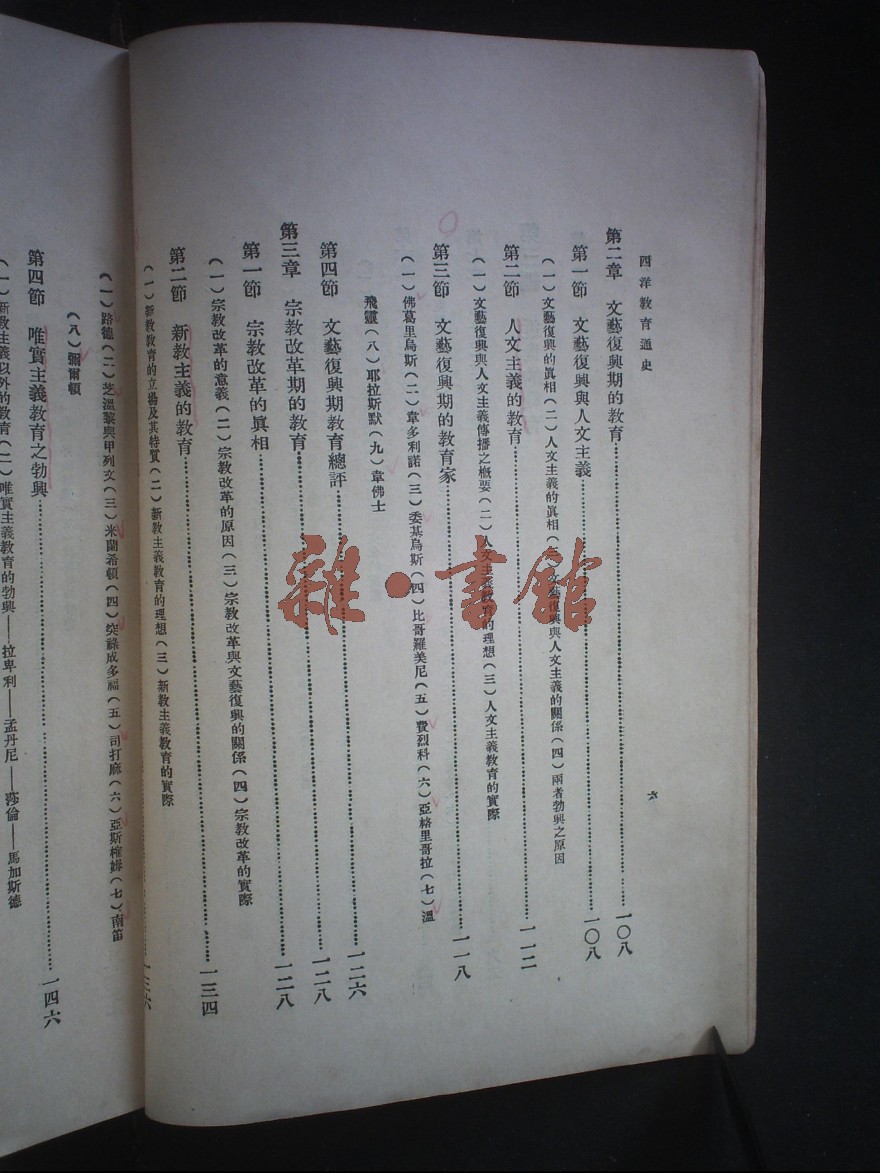 西洋教育通史
六
第二章 文藝復興期的教育……一〇八
第一節 文藝復興與人文主義……一〇八
(一)文藝復興的眞相(二)人文主義的眞相(三)文藝復興與人文主義的關係(四)兩者勃興之原因
第二節 人文主義的教育……一一二
(一)文藝復興與人文主義傳播之概要(二)人文主義教育的理想(三)人文主義教育的實際
第三節 文藝復興期的教育家……一一八
(一)佛葛里烏斯(二)韋多利諾(三)委基烏斯(四)比哥羅美尼(五)費烈科(六)亞格里哥拉(七)溫
飛靈(八)耶拉斯默(九)韋佛士
第四節 文藝復興期教育總評……一二六
第三章 宗教改革期的教育……一二八
第一節 宗教改革的眞相……一二八
(一)宗教改革的意義(二)宗教改革的原因(三)宗教改革與文藝復興的關係(四)宗教改革的實際
第二節 新教主義的教育……一三四
(一)新教教育的立場及其特質(二)新教主義教育的理想(三)新教主義教育的實際
一三六
(一)路德(二)芝溫黎與甲列文(三)米蘭希頓(四)突祿成多福(五)司打麻(六)亞斯檻姆(七)南笛
(八)彌爾頓
第四節 唯實主義教育之勃興……一四六
(一)新教主義以外的教育(二)唯實主義教育的勃興——拉卑利——孟丹尼——莎倫——馬加斯德
雜·書館